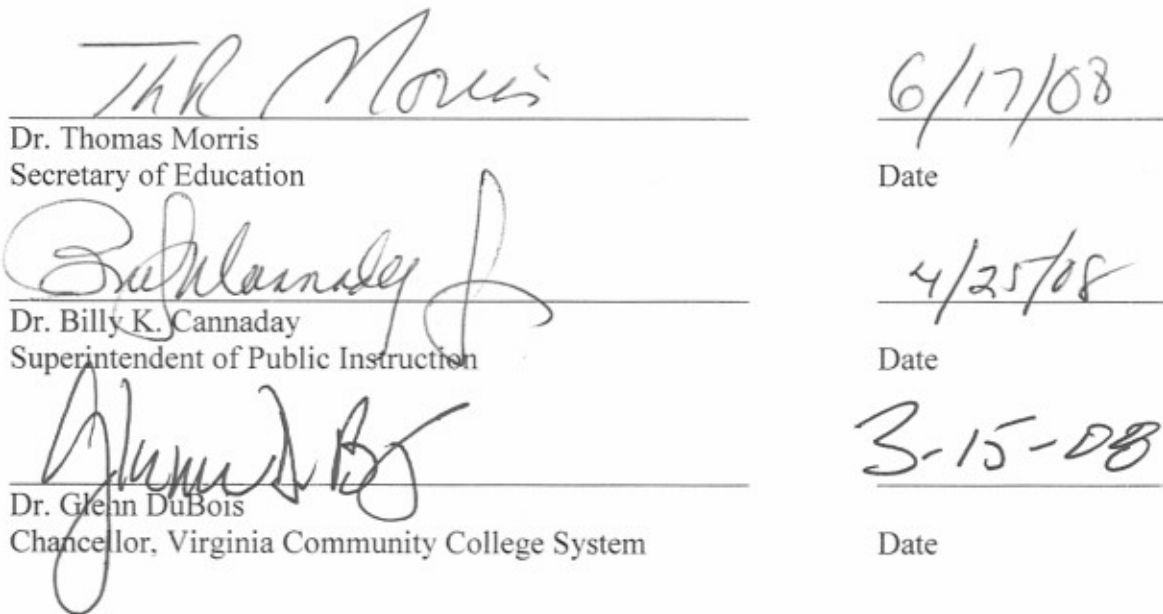 ThR Morris 6/17/08
Dr. Thomas Morris
Secretary of Education Date
4/25/08
Dr. Billy K. Cannaday
Superintendent of Public Instruction Date
3-15-08
Dr. Glenn DuBois
Chancellor, Virginia Community College System Date